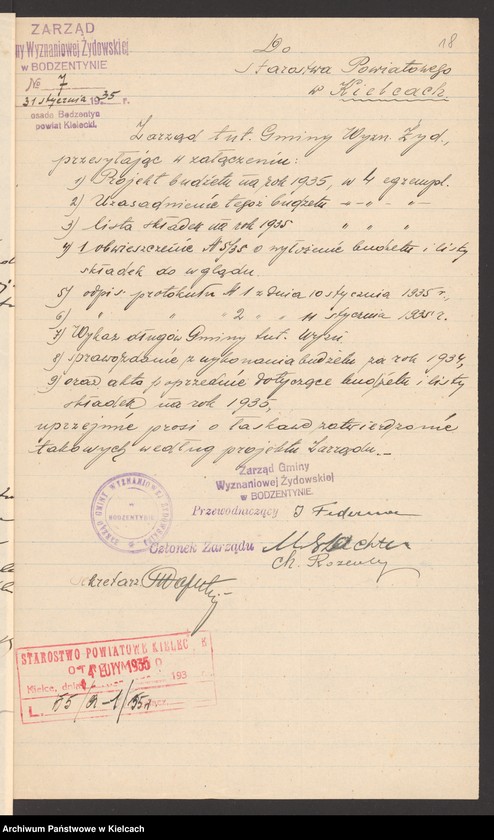 ZARZĄD
ny Wyznaniowej Żydowskiej
w BODZENTYNIE
№ 7
31 stycznia 1935 r.
osada Bodzentyn
powiat Kielecki.
18
Do
Starostwa Powiatowego
w Kielcach
Zarząd tut. Gminy Wyzn. Żyd.,
przesyłając w załączeniu:
1) Projekt budżetu na rok 1935, w 4 egzempl.
2) Uzasadnienie tegoż budżetu " " " "
3) lista składek na rok 1935 " " "
4) 1 obwieszczenie N 5/35 o wyłożenie budżetu i listy
składek do wglądu.
5) odpis protokułu N 1 z dnia 10 stycznia 1935 r.,
6) " " " 2 " " 11 stycznia 1935 r.
7) Wykaz długów Gminy tut. Wyzn.
8) sprawozdanie z wykonania budżetu za rok 1934,
9) oraz akta poprzednie dotyczące budżetu i listy
składek na rok 1935,
uprzejmie prosi o łaskawe zatwierdzenie
takowych według projektu Zarządu.
Zarząd Gminy
Wyznaniowej Żydowskiej
w BODZENTYNIE.
ZARZĄD GMINY WYZNANIOWEJ ŻYDOWSKIEJ
BODZENTYNIE
Przewodniczący
Członek Zarządu
Ch.
Sekretarz
STAROSTWO POWIATOWE KIELEC
OTRZYMANO
4 LUTY 1935
Kielce, dnia 193
L.
Archiwum Państwowe w Kielcach